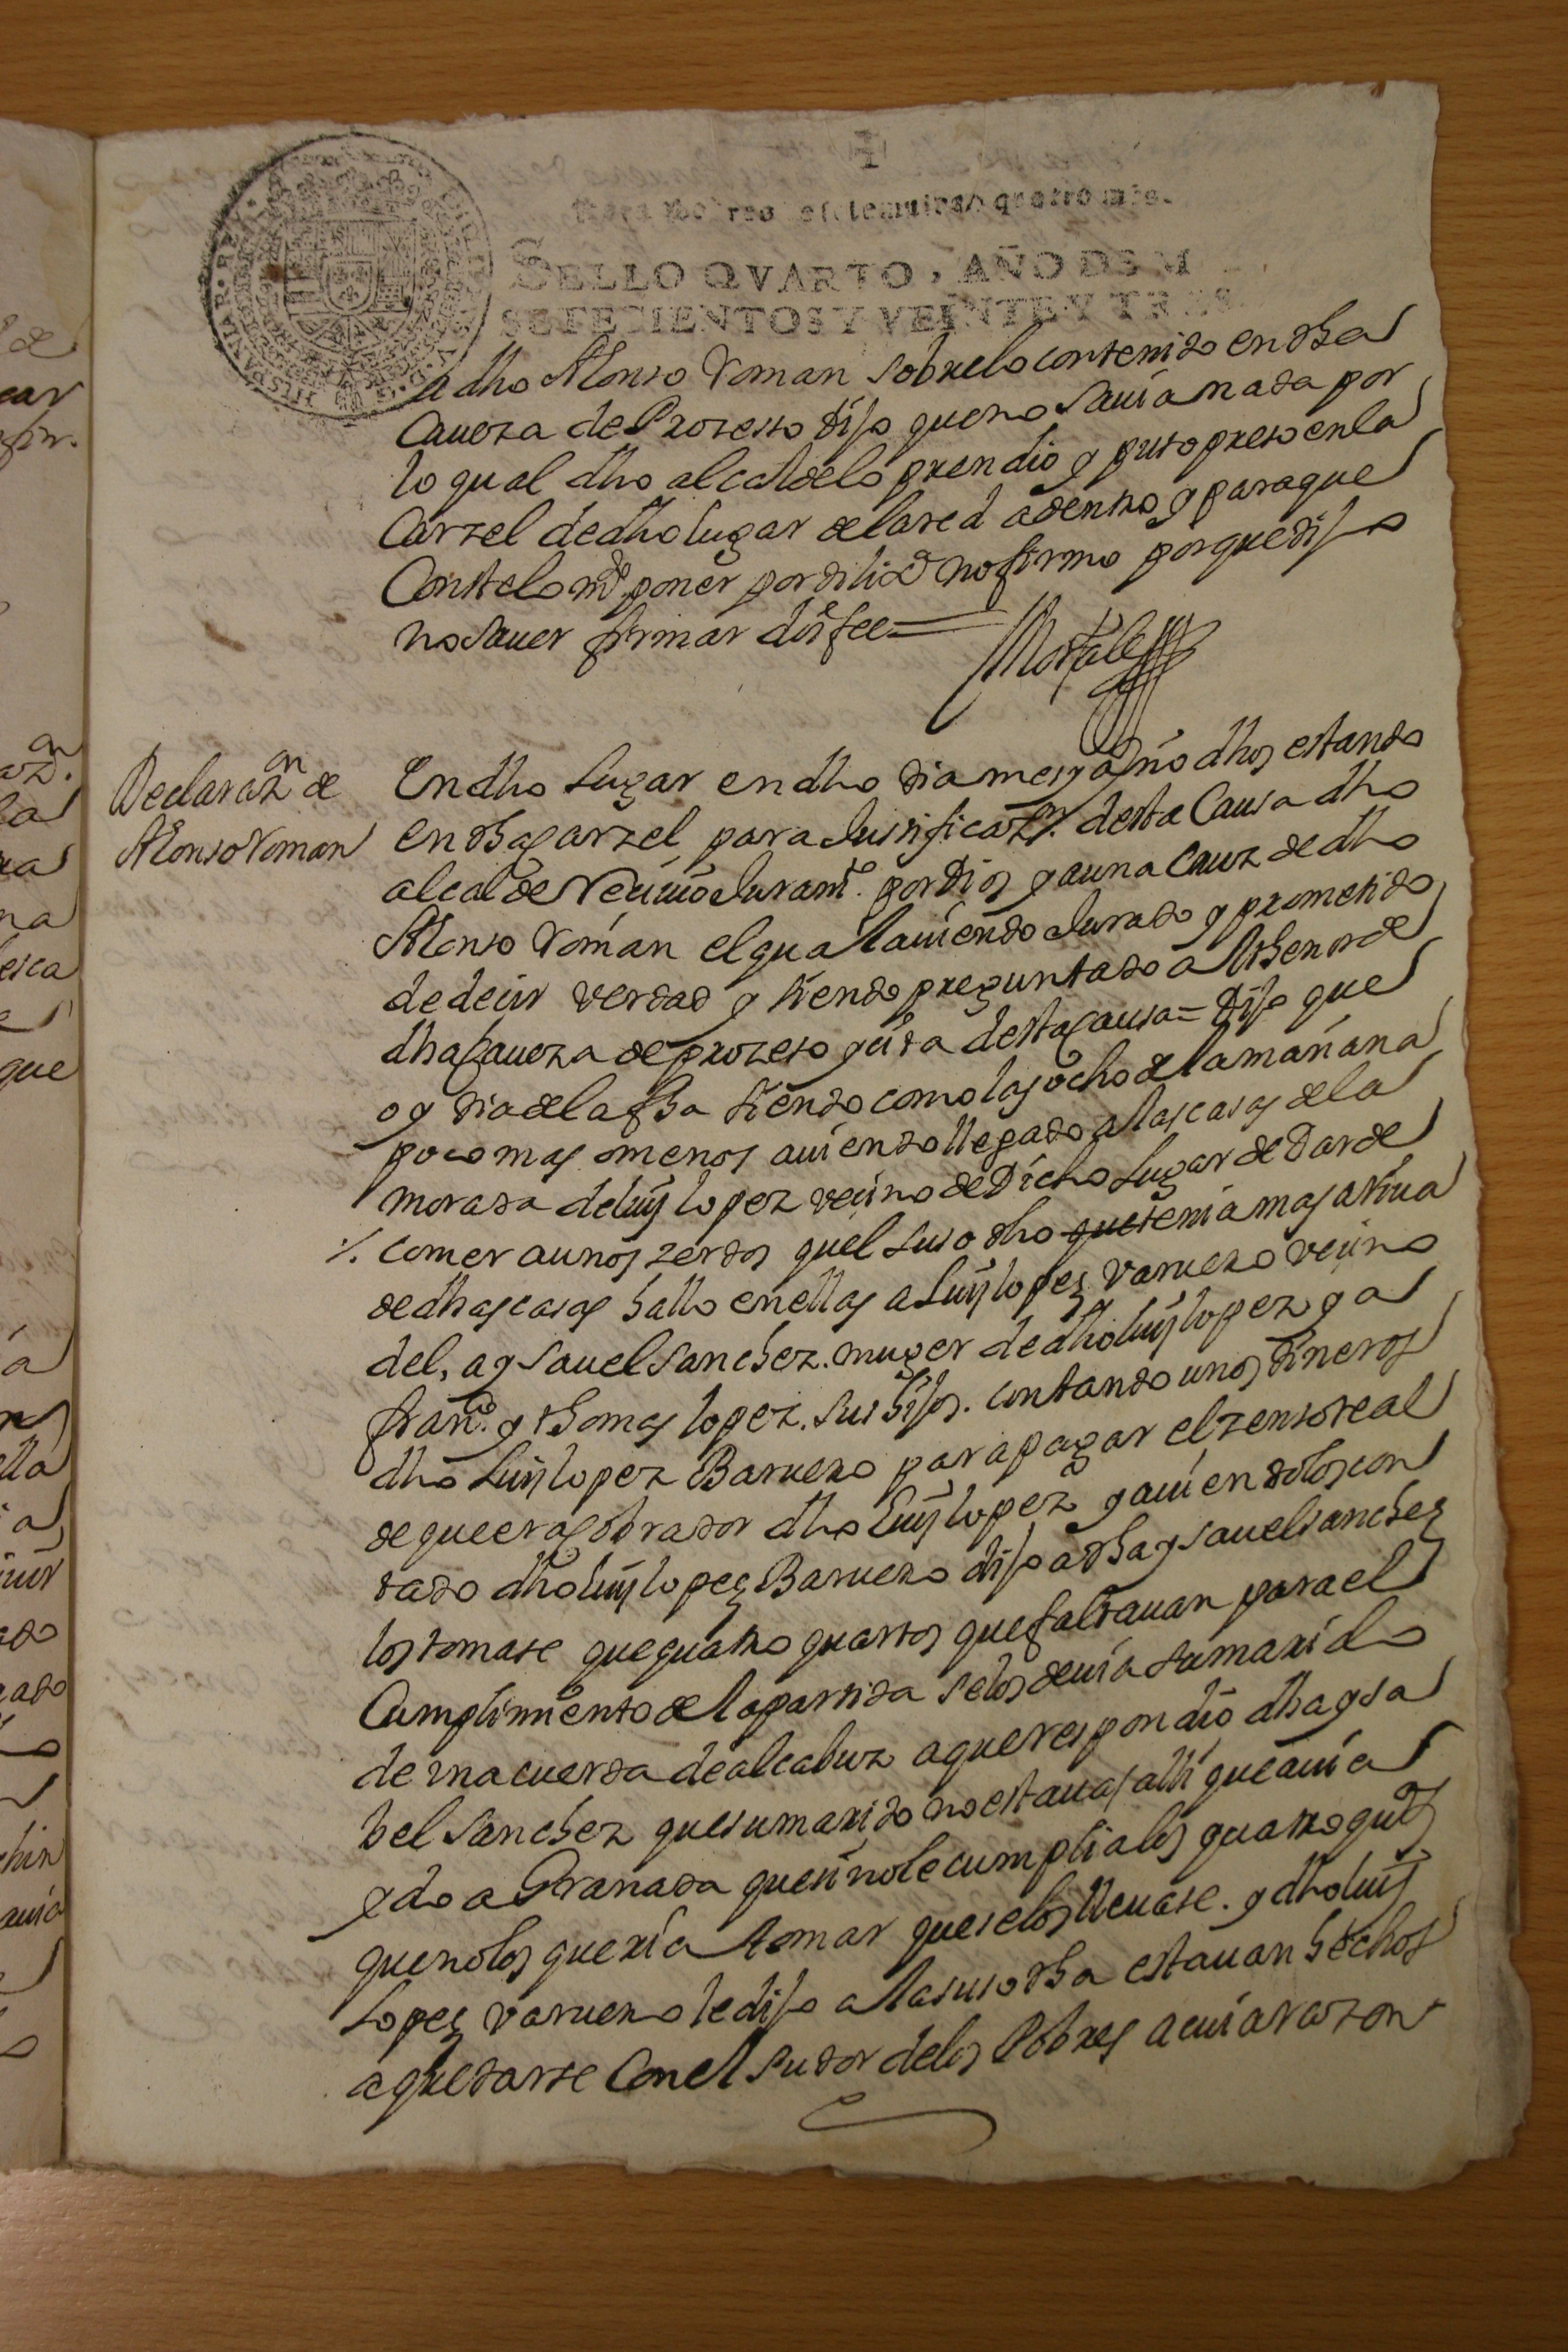 SELLO QVARTO, AÑO DE M
SETECIENTOS Y VEINTE Y TRES
HISPANIAR. REX
a dho Alonso Roman sobre lo contenido en dha
Caueza de Prozesso dijo que no sauia nada por
lo qual dho alcalde lo prendio y puso preso en la
Carzel de dho lugar de la red adentro y para que
Conste lo mdo. poner por dilixa no firmo porque dijo
no sauer firmar doi fee =
Morales
Declarazn de
Alonso Roman
En dho Lugar en dho dia mes y año dhos estando
en dha carzel para Justificazn. desta Causa dho
alcalde Reciuio Juramto. por Dios y a una Cruz de dho
Alonso Roman el qual auiendo Jurado y prometido
de decir verdad y siendo preguntado al thenor de
dha Caueza de prozeso y uida desta causa = Dijo que
oy dia de la fha siendo como las ocho de la mañana
poco mas o menos auiendo llegado a las casas de la
morada de luis lopez vecino de Dicho Lugar de Dar de
/. comer a unos zerdos quel suso dho que tenia mas ariua
de dhas casas hallo en ellas a Luis lopez varuero vecino
del, a ysauel sanchez. muger de dho luis lopez y a
franco. y thomas lopez. sus hijos. contando unos dineros
dho Luis lopez Baruero para pagar el zenso real
de que era cobrador dho Luis lopez y auiendolos con
tado dho luis lopez Baruero dijo a dha ysauel sanchez
los tomase que quatro quartos que faltauan para el
Cumplimiento de la partida se los deuia su marido
de una cuerda de alcabuz a que respondio dha ysa
bel sanchez que su marido no estaua alli que auia
ydo a Granada que si no le cumplia los quatro qutos
que no los queria tomar que se los lleuase. y dho luis
Lopez varuero le dijo a la suso dha estauan hechos
a quedarse Con el sudor de los Pobres a cuia razon